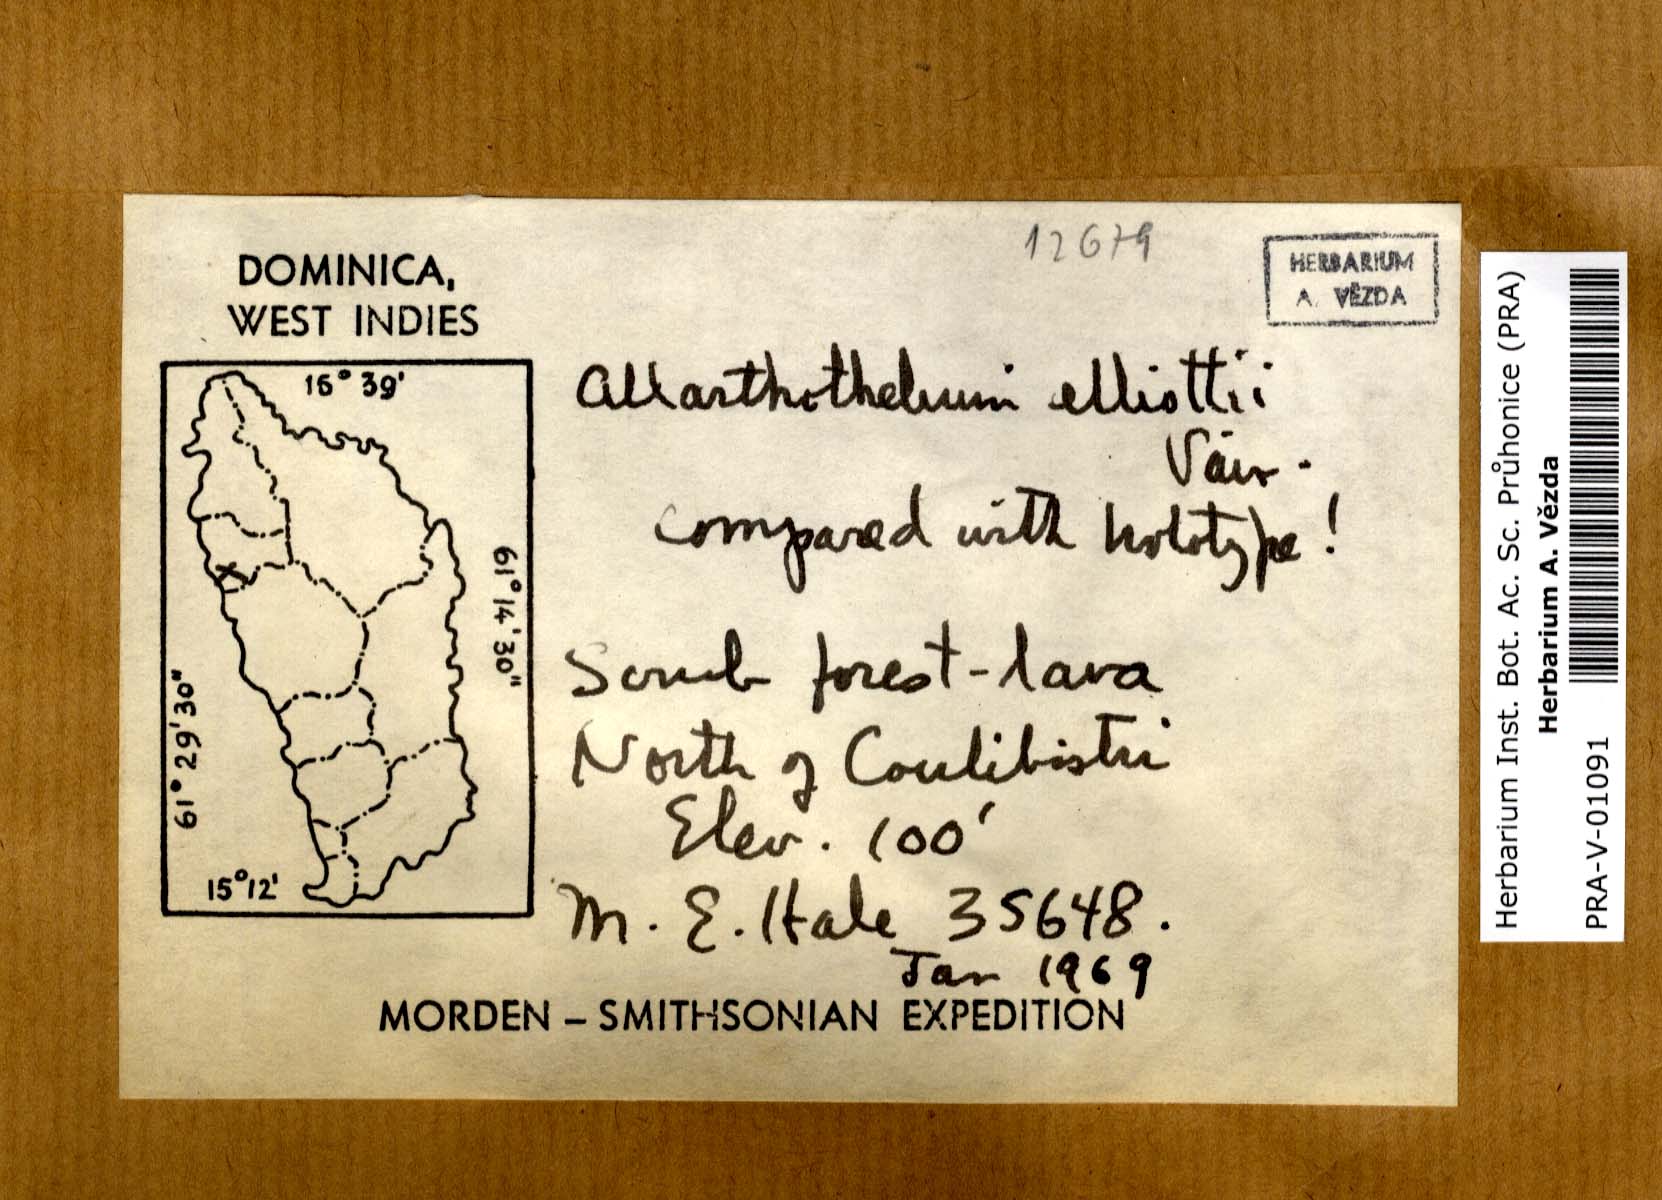 12679
HERBARIUM
A. VĚZDA
DOMINICA,
WEST INDIES
15° 39'
61° 14' 30"
61° 29' 30"
15° 12'
Allarthothelium elliottii
Vain.
compared with holotype!
Scrub forest - lava
North of Coulibistri
Elev. 100'
M. E. Hale 35648.
Jan 1969
MORDEN – SMITHSONIAN EXPEDITION
Herbarium Inst. Bot. Ac. Sc. Průhonice (PRA)
Herbarium A. Vězda
PRA-V-01091